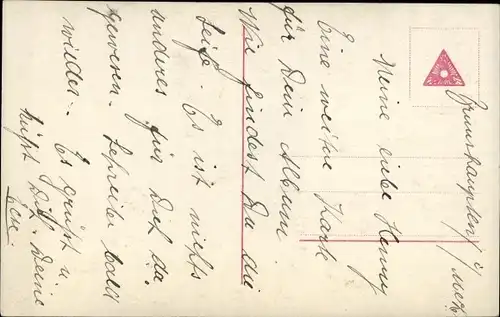 Brunshaupten i/Meck
Meine liebe Henny
Eine weitere Karte
für Dein Album.
Wie findest Du die
Seife. Es ist nichts
anderes für Dich da
gewesen. Schreibe bald
wieder.
Es grüßt u.
küßt Dich Deine